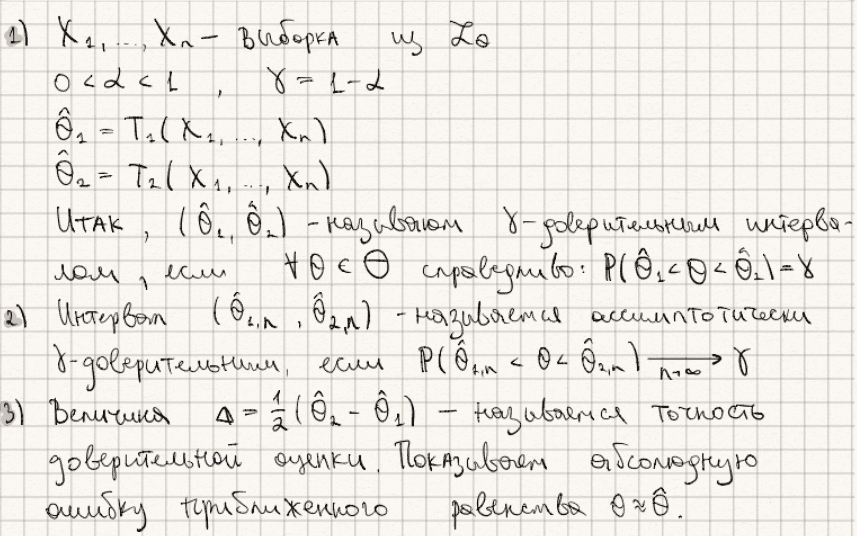 1) X₁, ..., Xₙ – выборка из ℒ_θ
0 < α < 1 , γ = 1-α
θ̂₁ = T₁( X₁, ..., Xₙ)
θ̂₂ = T₂( X₁, ..., Xₙ)
Итак, (θ̂₁, θ̂₂) – называют γ-доверительным интерва-
лом, если ∀ θ ∈ Θ справедливо: P(θ̂₁ < θ < θ̂₂) = γ
2) Интервал (θ̂₁,ₙ , θ̂₂,ₙ) – называется ассимптотически
γ-доверительным, если P(θ̂₁,ₙ < θ < θ̂₂,ₙ) ⟶ γ n→∞
3) Величина Δ = ½ (θ̂₂ - θ̂₁) – называется точность
доверительной оценки. Показывает абсолюдную
ошибку приближенного равенства θ ≈ θ̂.